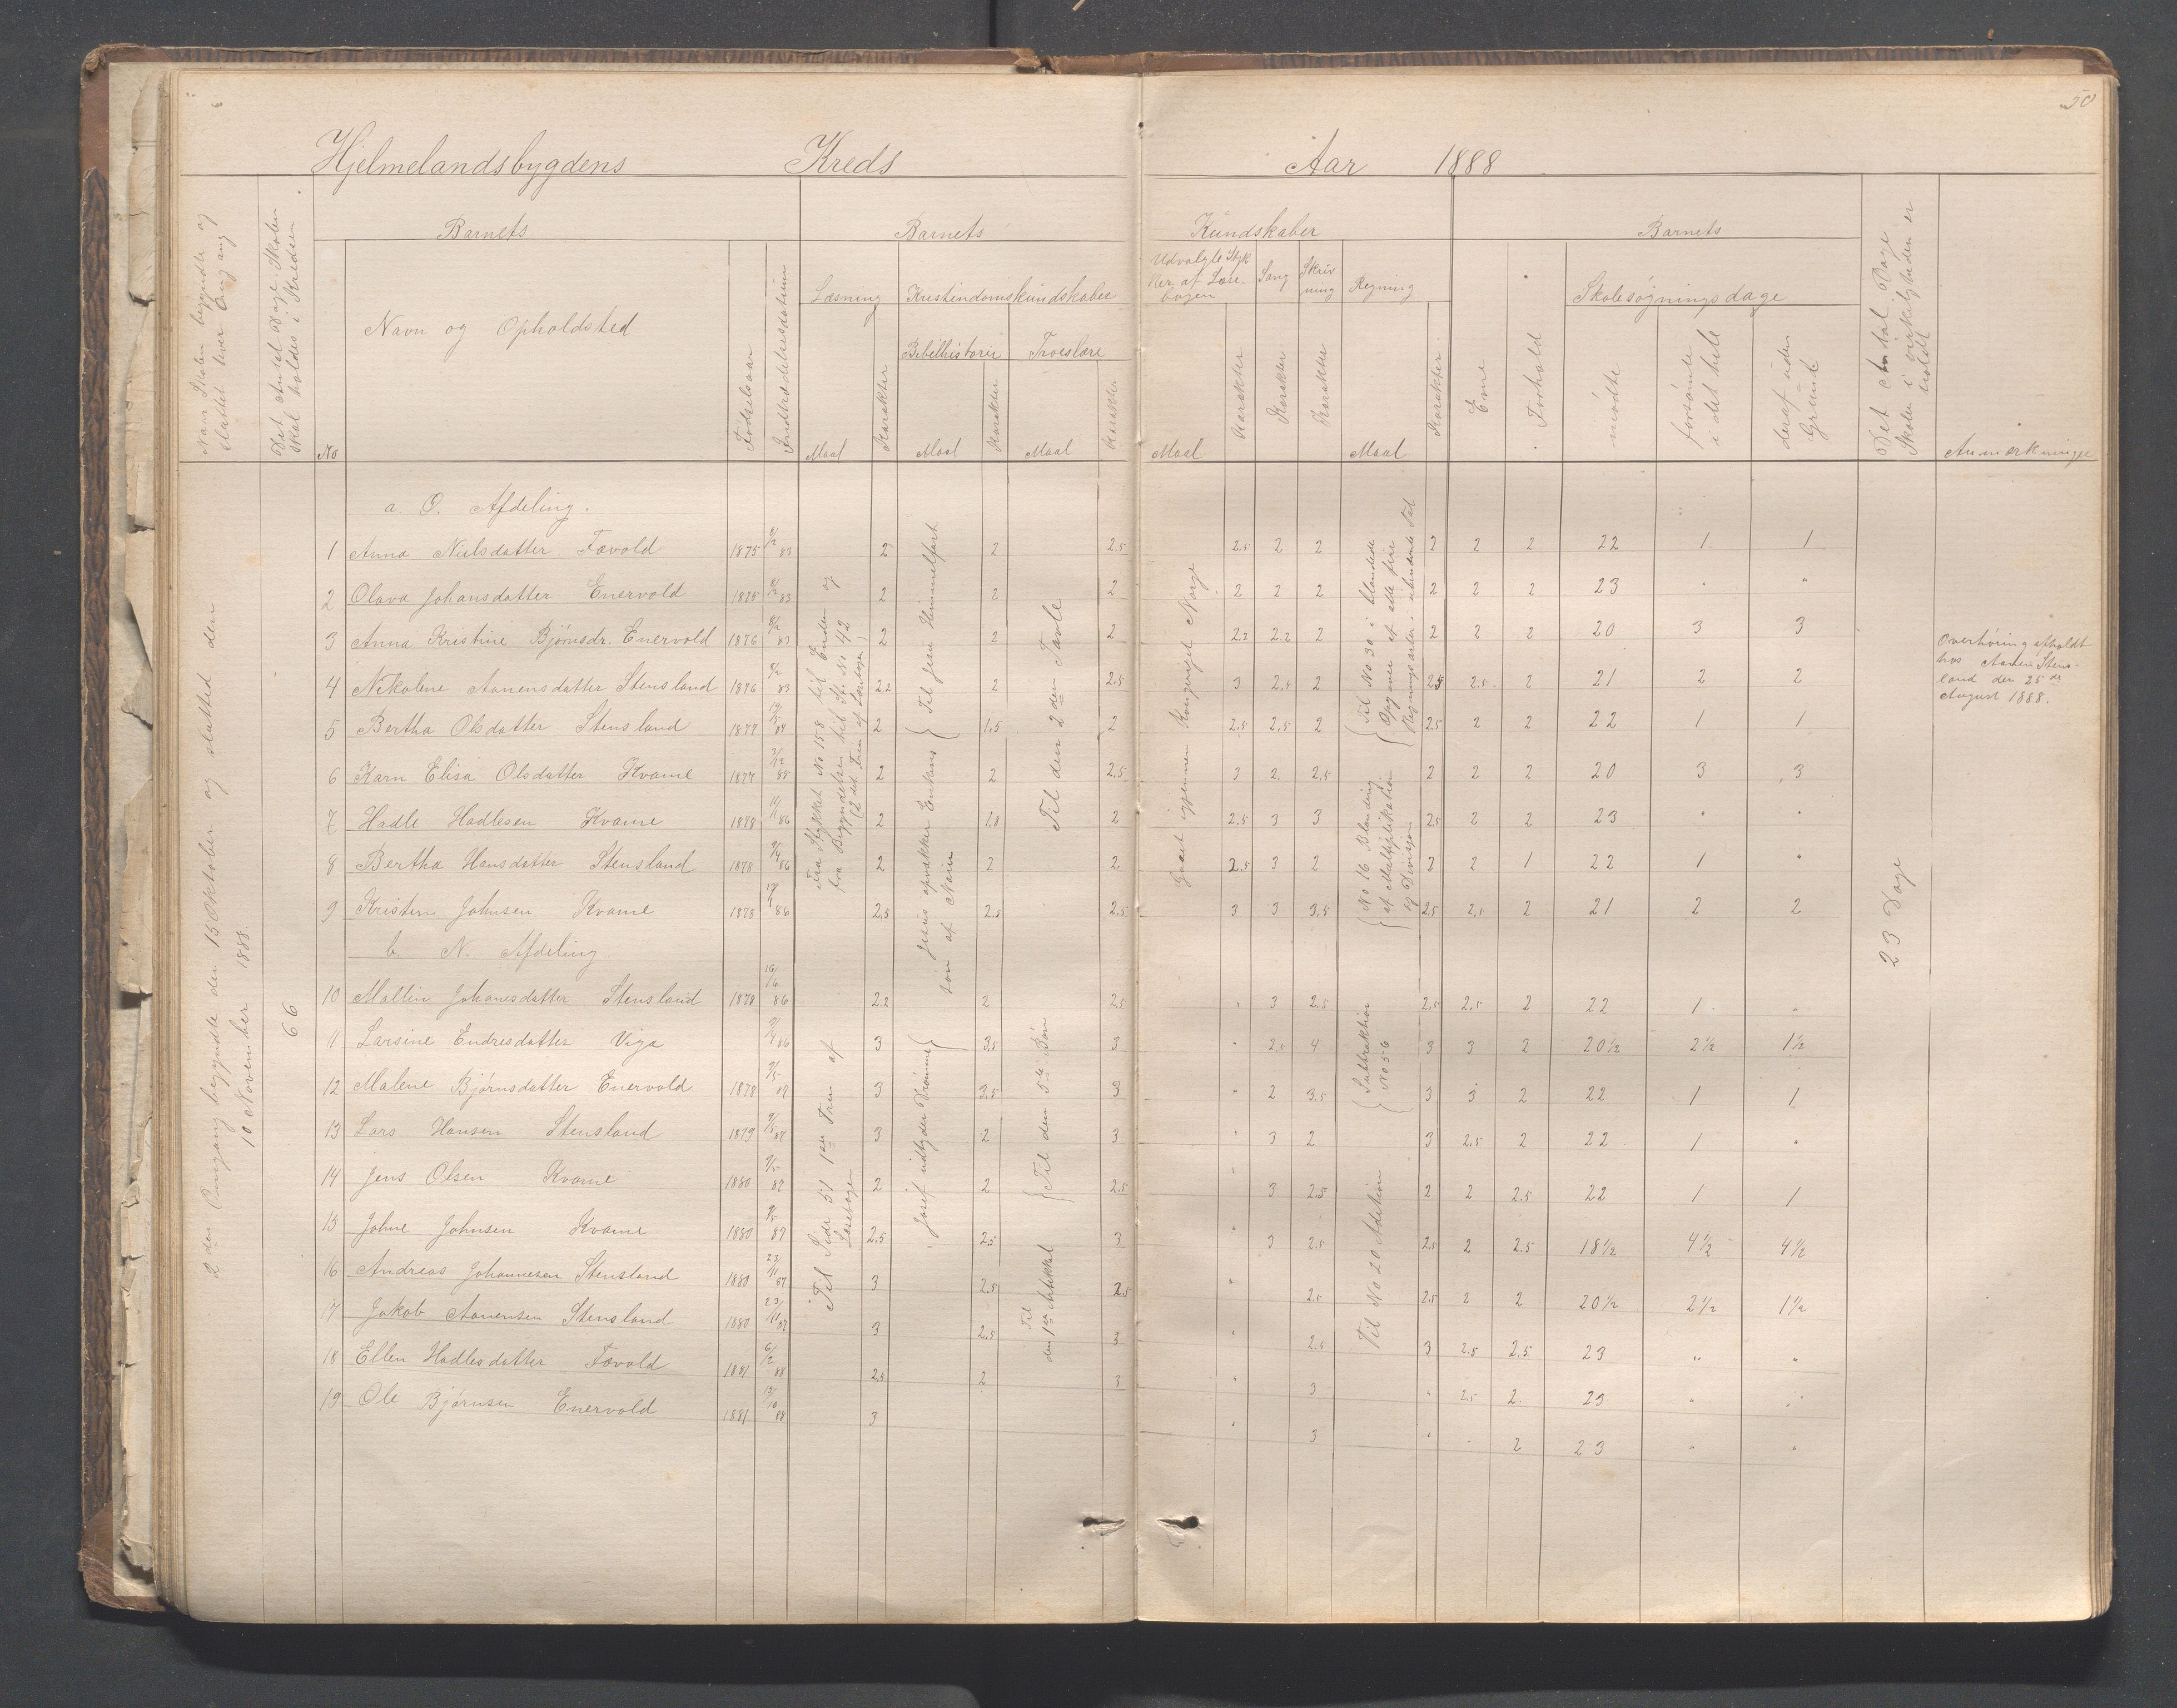 50
Hjelmelandsbygdens Kreds Aar 1888
Naar Skolen begyndte og sluttet hver Omgang
Det Antal Dage Skolen skal holdes i Kredsen
Barnets
No
Navn og Opholdsted
Fødselsaar
Indtrædelsesdatum
Barnets
Læsning
Maal
Karakter
Kristindomskundskaber
Bibelhistorie
Maal
Karakter
Troeslære
Maal
Karakter
Kundskaber
Udvalgte Styk
ker af Læse-
bogen
Maal
Karakter
Sang
Karakter
Skriv
ning
Karakter
Regning
Maal
Karakter
Barnets
Evne
Forhold
Skolesøgningsdage
mødte
forsømte
i det hele
deraf uden
Grund
Det Antal Dage
Skolen i virkeligheden er
holdt
Anmærkninger
2den Omgang begyndte den 15 Oktober og slutted den
10 November 1888
66
a. O. Afdeling.
1 Anna Nielsdatter Fævold 1875 8/2 83 2 2 2.5 2.5 2 2 2 2 2 22 1 1
2 Olava Johansdatter Enervold 1875 8/2 83 2 2 2 2 2 2 2 2 2 23 " "
3 Anna Kristine Bjørnsdr. Enervold 1876 8/2 83 2 2 2 2.2 2.2 2 2 2 2 20 3 3
4 Nikolene Aanensdatter Stensland 1876 8/2 83 2.2 2 2.5 3 2.5 2 2.5 2.5 2 21 2 2
5 Bertha Olsdatter Stensland 1877 84 2 1.5 2 2.5 2.5 2 2.5 2 2 22 1 1
6 Karn Elisa Olsdatter Kvame 1877 3/12 85 2 2 2.5 3 2. 2.5 2 2 2 20 3 3
7 Hadle Hadlesen Kvame 1878 11/11 86 2 1.8 2 2.5 3 3 2.5 2 2 23 " "
8 Bertha Hansdatter Stensland 1878 86 2 2 2 2.5 3 2 2 2 1 22 1 "
9 Kristen Johnsen Kvame 1878 86 2.5 2.5 2.5 3 3 3.5 2.5 2.5 2 21 2 2
b. N. Afdeling
10 Mallin Johanesdatter Stensland 1878 86 2.2 2 2.5 " 3 2.5 2.5 2.5 2 22 1 "
11 Larsine Endresdatter Viga 86 3 3.5 3 " 2.5 4 3 3 2 20½ 2½ 1½
12 Malene Bjørnsdatter Enervold 1878 9/5 87 3 3.5 3 " 2 3.5 3 3 2 22 1 1
13 Lars Hansen Stensland 1879 9/5 87 3 2 3 " 3 2 3 2.5 2 22 1 "
14 Jens Olsen Kvame 1880 9/5 87 2 2 2.5 " 3 2.5 2 2 2.5 22 1 1
15 Johne Johnsen Kvame 1880 9/5 87 2.5 2.5 3 " 3 2.5 2.5 2 2.5 18½ 4½ 4½
16 Andreas Johannesen Stensland 1880 23/11 87 3 2.5 2.5 " 2.5 2.5 2 2 20½ 2½ 1½
17 Jakob Aanensen Stensland 1880 23/11 87 3 2.5 3 " 2.5 3 2.5 2.5 23 " "
18 Ellen Hadlesdatter Fævold 1881 6/2 88 2.5 2 3 " 3 " 2.5 2. 23 " "
19 Ole Bjørnsen Enervold 1881 15/10 88 3 " 3 " 2 23 " "
Fra Stykket No 158 til Enden og
fra Begyndelsen til St. No 42
(2det Trin af Læsebogen)
Til Side 51 1ste Trin af
Læsebogen
Jesus opvækker Enkens { Til Jesu Himmelfart
søn af Nain
Josef udtyder Drømme {
Til den 2den Tavle
{ Til den 5te Bøn
Til
den 1ste Artikkel
Gaaet igjennem Kongeriget Norge
{ Til No 30 i blandede
Opgaver af alle fire
Regningsarter i ubenævnte Tal
{ No 16 Blanding
af Multiplikation
og Division
{ Subtraktion
No 56
Til No 20 Adition
23 Dage
Overhøring afholdt
hos Aanen Stens-
land den 25de
August 1888.